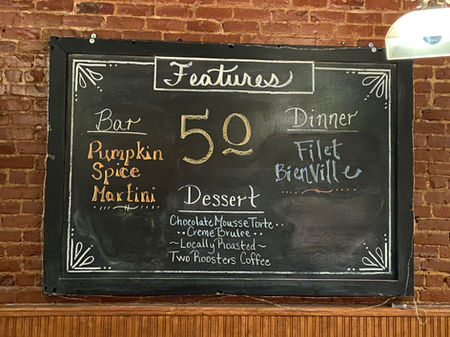 Features
Bar
Pumpkin
Spice
Martini
50
Dinner
Filet
BienVille
Dessert
Chocolate Mousse Torte
Creme Brulee
~Locally Roasted~
Two Roosters Coffee